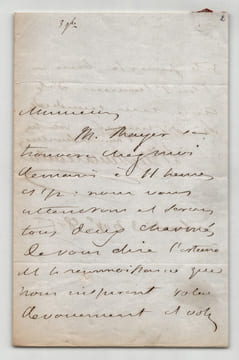 3 ph
2
Monsieur
M. Thayer se
trouvera chez moi
demain à 11 heures
et ½ : nous vous
attendrons et serons
tous deux charmés
de vous dire l'estime
et la reconnaissance que
nous inspirent votre
dévouement et votre